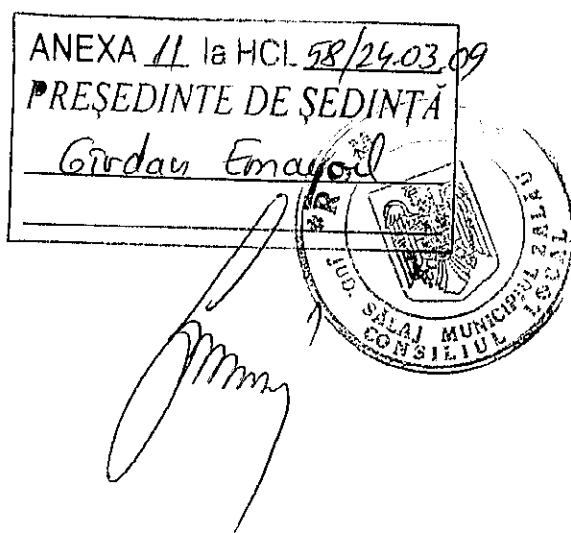 ANEXA 11 la HCL 58/24.03.09
PREȘEDINTE DE ȘEDINȚĂ
JUD. SĂLAJ MUNICIPIUL ZALĂU
CONSILIUL LOCAL